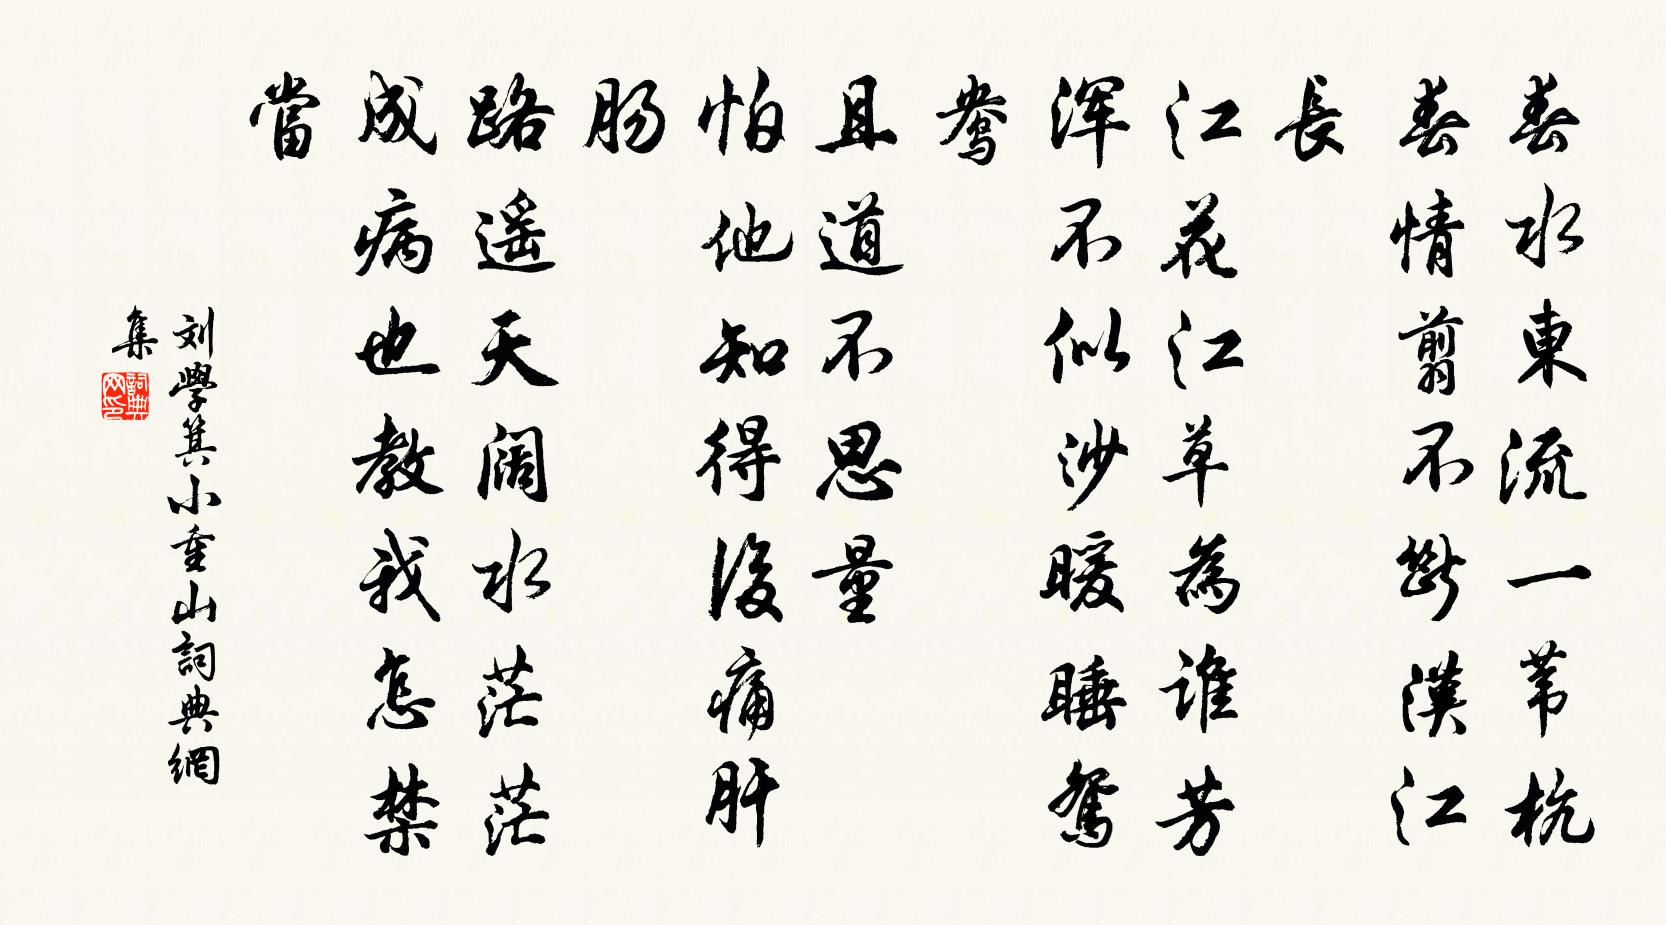 春水東流一苇杭
春情翦不斷漢江
長
江花江草為誰芳
浑不似沙暖睡鸳
鸯
且道不思量
怕他知得後痛肝
肠
路遥天阔水茫茫
成病也教我怎禁
當
刘學箕小重山詞典網
集
詞典網印